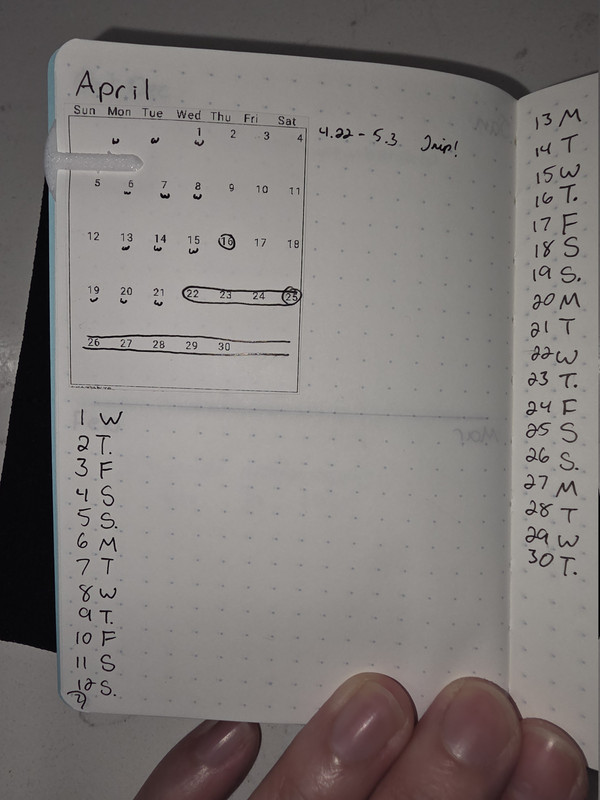 April
Sun Mon Tue Wed Thu Fri Sat
1 2 3 4
5 6 7 8 9 10 11
12 13 14 15 16 17 18
19 20 21 22 23 24 25
26 27 28 29 30
4.22 - 5.3 Trip!
1 W
2 T.
3 F
4 S
5 S.
6 M
7 T
8 W
9 T.
10 F
11 S
12 S.
13 M
14 T
15 W
16 T.
17 F
18 S
19 S.
20 M
21 T
22 W
23 T.
24 F
25 S
26 S.
27 M
28 T
29 W
30 T.